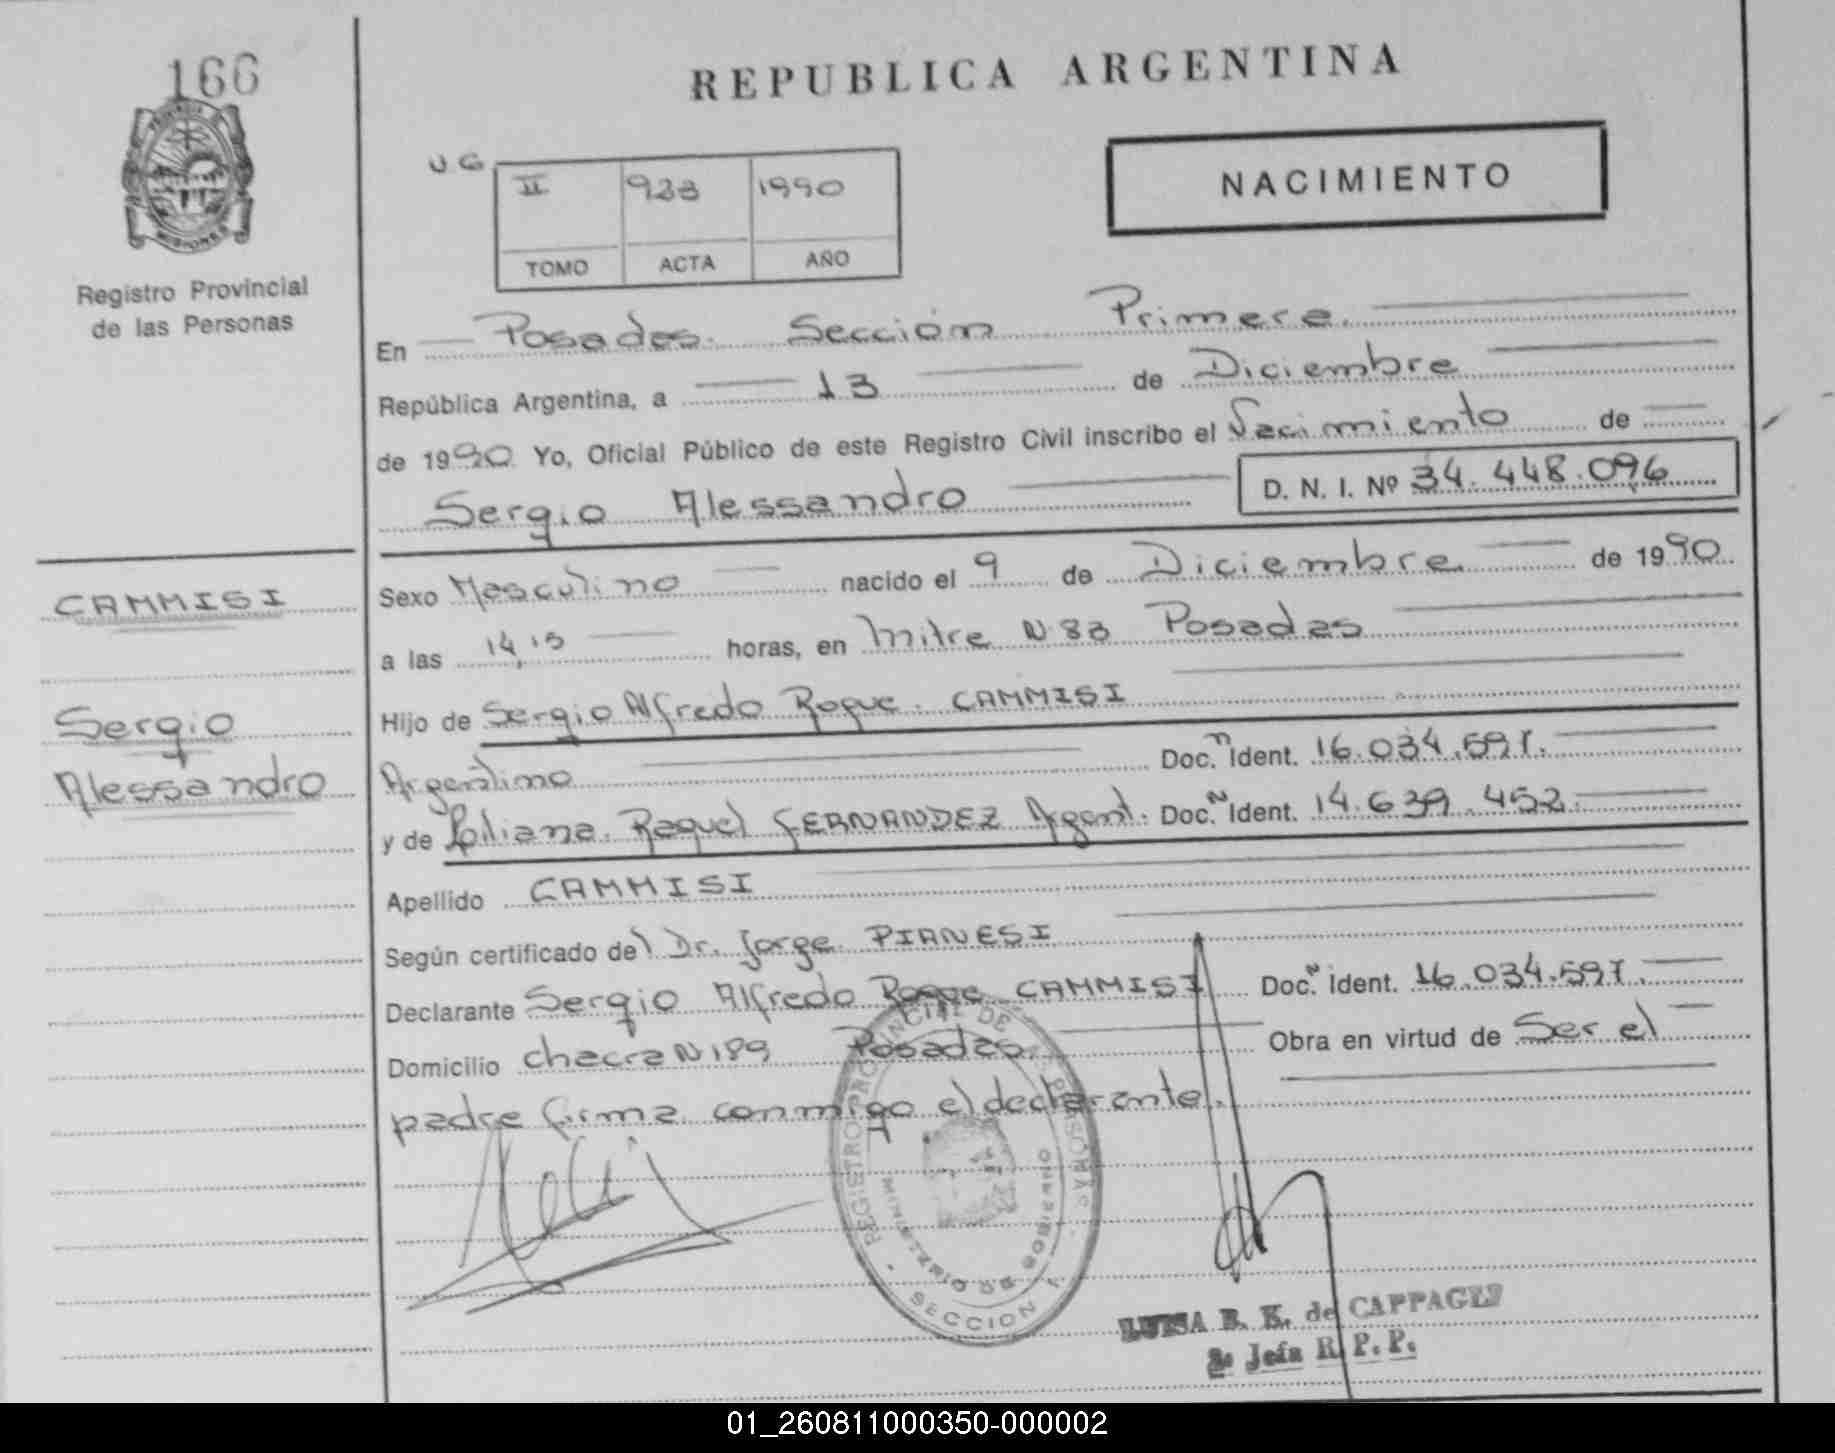 166
REPUBLICA ARGENTINA
U.G
II 923 1990
TOMO ACTA AÑO
NACIMIENTO
MISIONES
Registro Provincial
de las Personas
En Posadas. Sección Primera.
República Argentina, a 13 de Diciembre
de 1990 Yo, Oficial Público de este Registro Civil inscribo el Nacimiento de
Sergio Alessandro
D. N. I. Nº 34.448.096
CAMMISI
Sergio
Alessandro
Sexo Masculino nacido el 9 de Diciembre. de 1990
a las 14,15 horas, en Mitre N 83 Posadas
Hijo de Sergio Alfredo Roque. CAMMISI
Argentino Doc. N Ident. 16.034.597.
y de Liliana Raquel FERNANDEZ Argent. Doc. N Ident. 14.639.452.
Apellido CAMMISI
Según certificado del Dr. Jorge PIANESI
Declarante Sergio Alfredo Roque CAMMISI Doc. N ident. 16.034.597.
Domicilio chacra N 189 Posadas. Obra en virtud de Ser el
padre firma conmigo el declarante.
REGISTRO PROVINCIAL DE LAS PERSONAS
MINISTERIO DE GOBIERNO
SECCION 1
LUISA B. K. de
2º Jefa R. P. P.
01_260811000350-000002